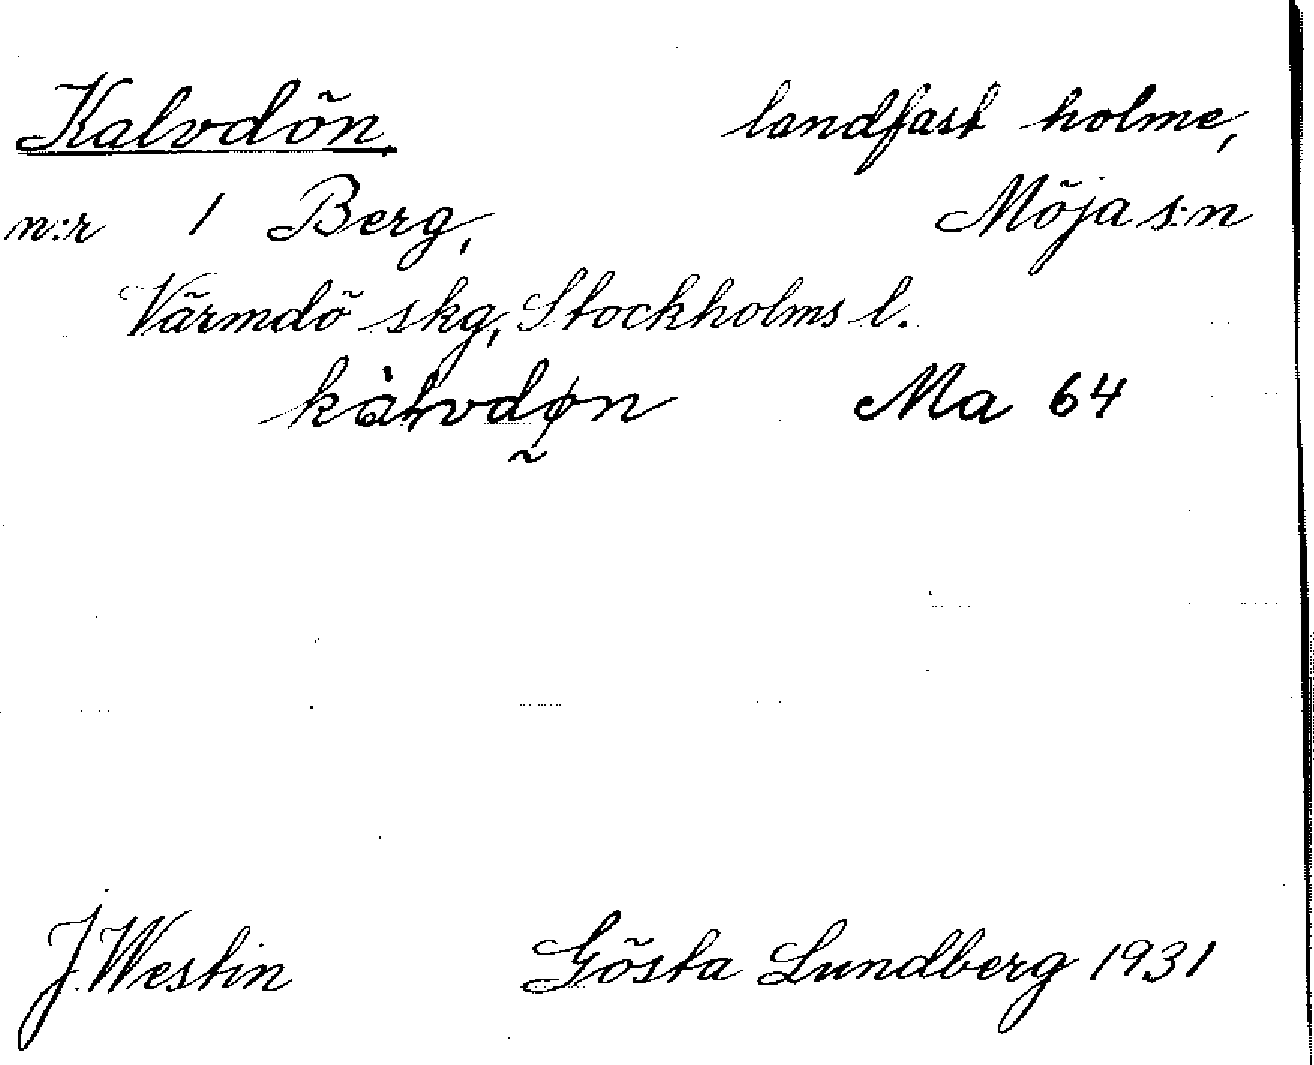 Kalvdön, landfast holme,
n:r 1 Berg, Möja s:n
Värmdö skg, Stockholms l.
kàlvdøn Ma 64
J. Westin Gösta Lundberg 1931